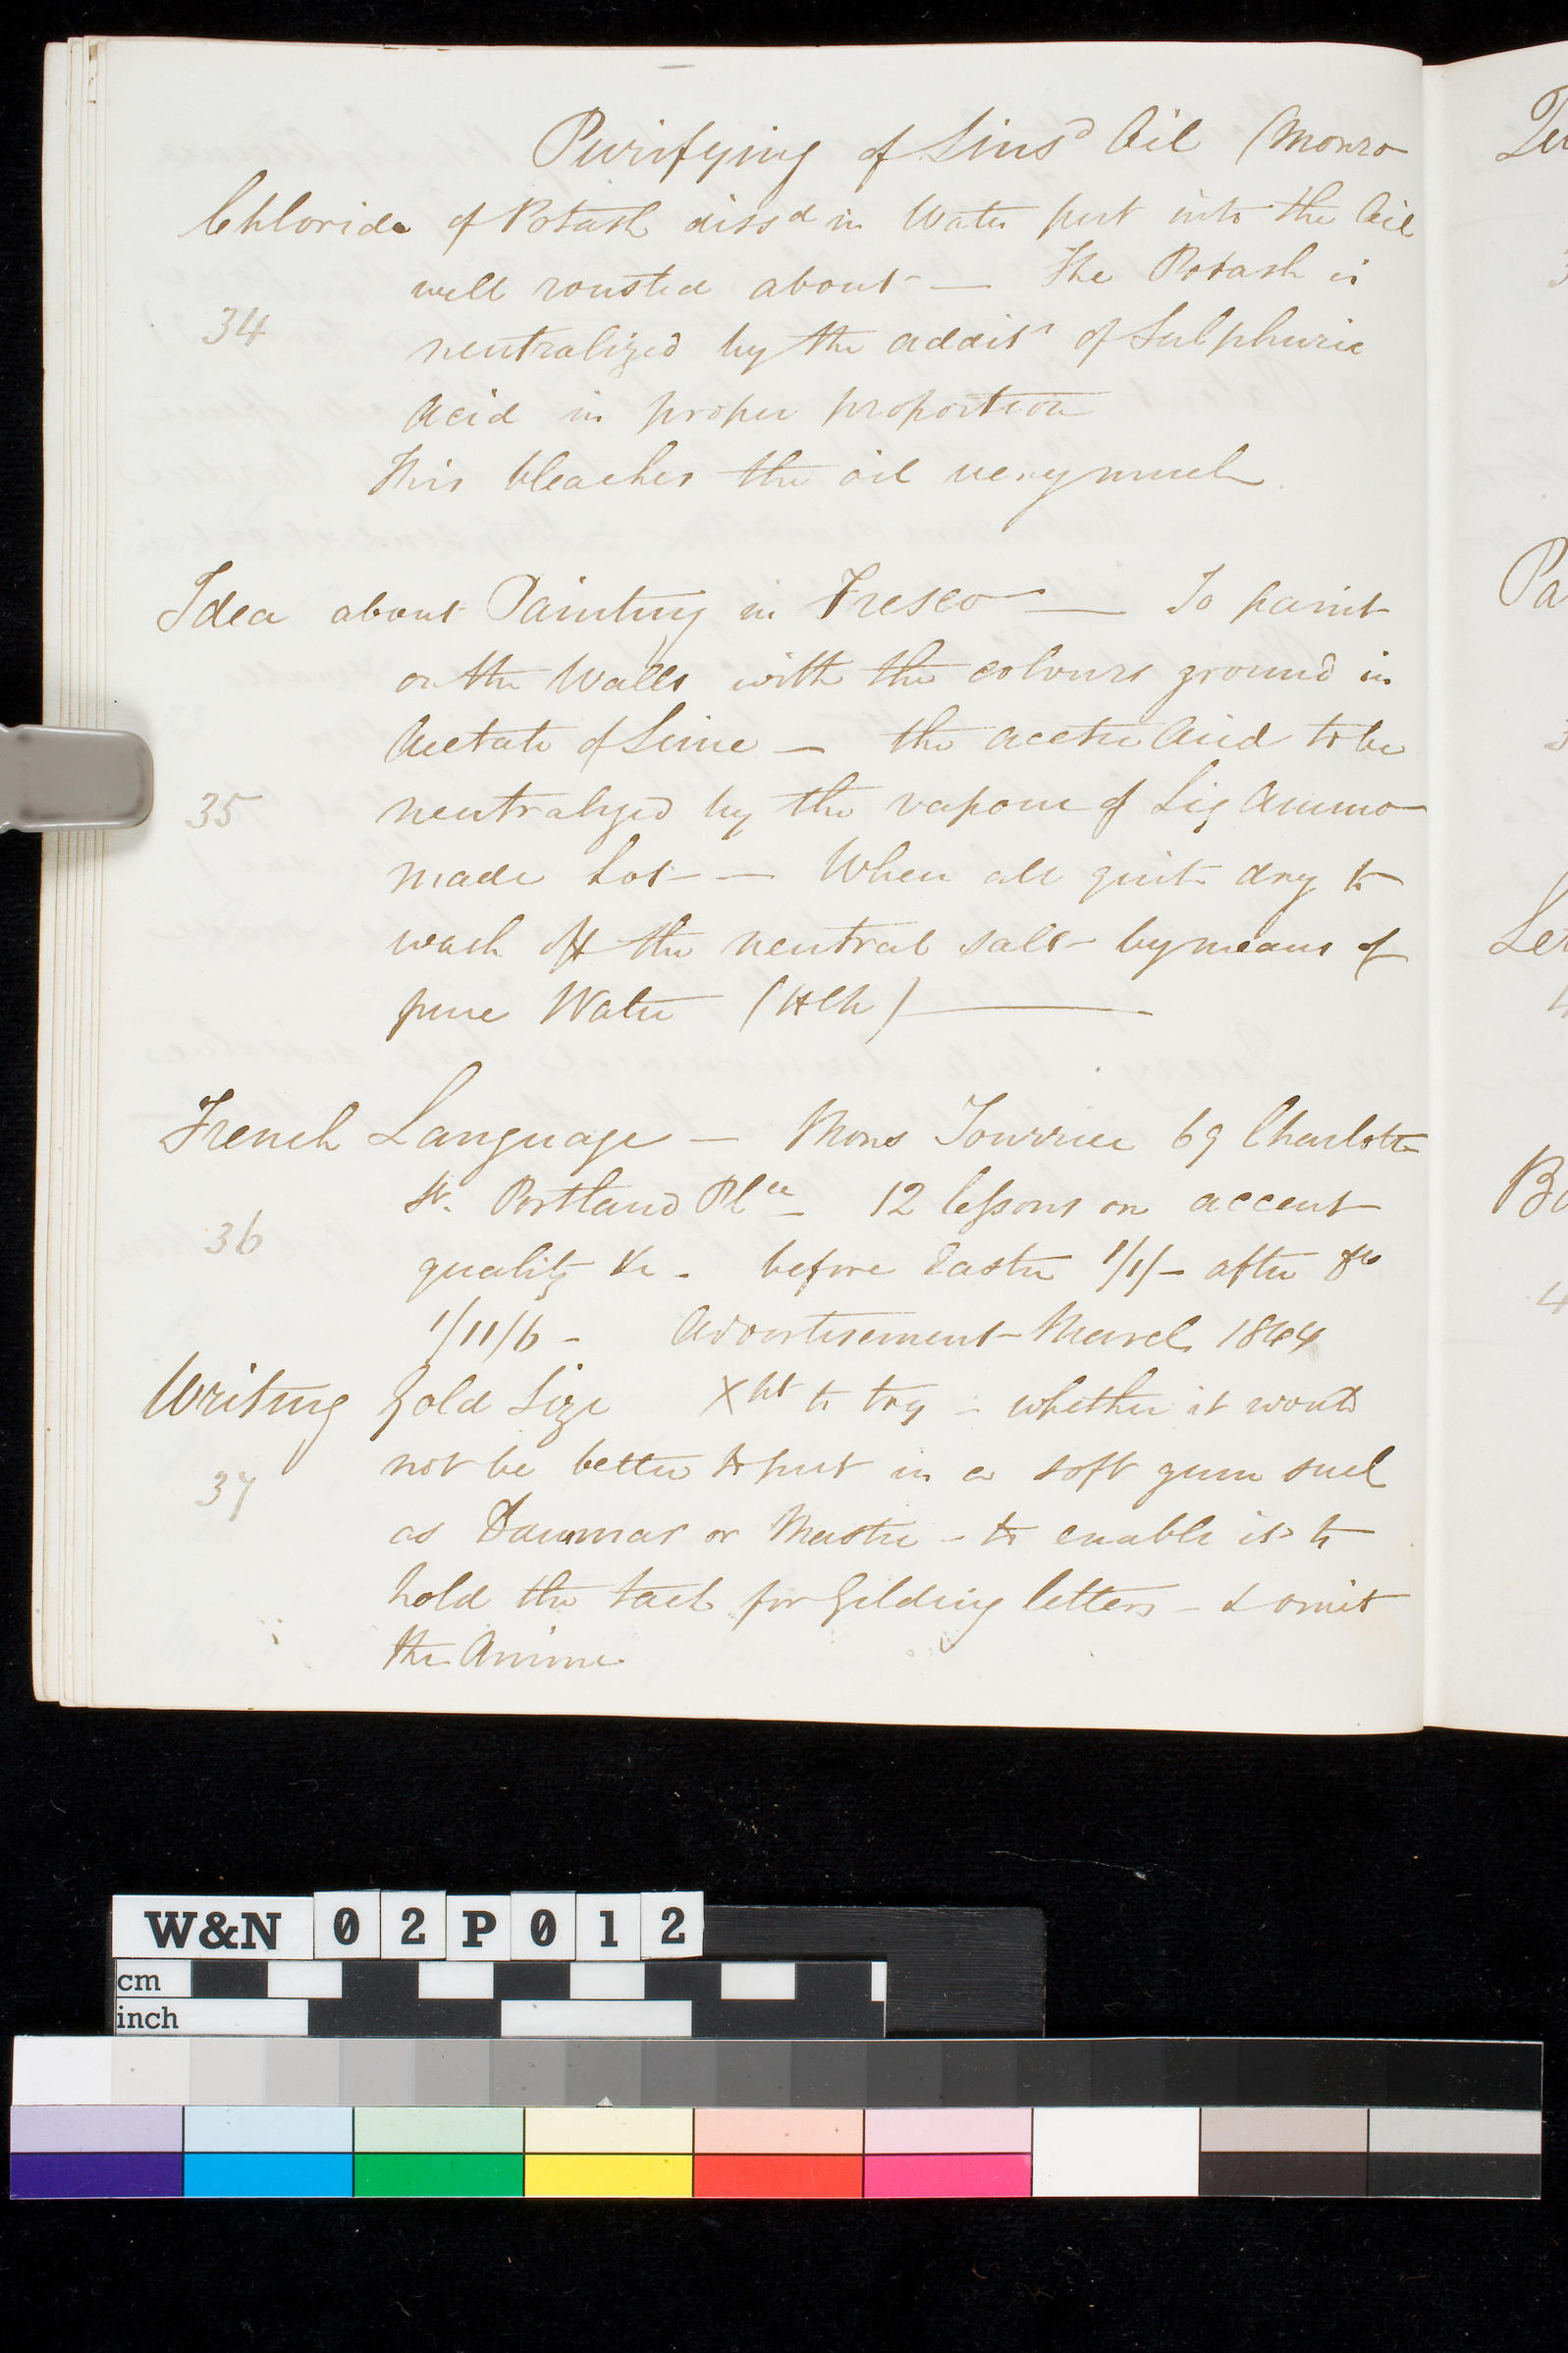 Purifying of Lins^d Oil (Monro
Chloride of Potash diss^d in Water put into the Oil
well rousted about — The Potash is
34
neutralized by the addit^n of Sulphuric
Acid in proper proportion
This bleaches the oil very much
Idea about Painting in Fresco — To paint
on the Walls with the colours ground in
Acetate of Lime — the acetic Acid to be
35
neutralyzed by the vapour of Liq Ammo
made hot — When all quite dry to
wash off the neutral salt by means of
pure Water (HCh) —
French Language — Mons Tourrier 69 Charlotte
St. Portland Pl^ce 12 lessons on accent
36
quality &c - before Easter 1/1/- after do
1/11/6 - Advertisement March 1844
Writing Gold Size X^nt to try - whether it would
not be better to put in a soft gum such
37
as Dammar or Mastic - to enable it to
hold the tack for Gilding letters - & omit
the Anime
Pa
Let
Bo
W&N 02P012
cm
inch